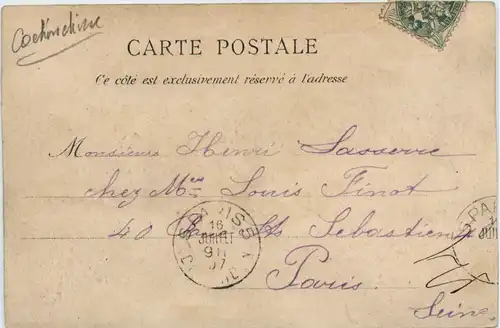 Cochinchine
CARTE POSTALE
Ce côté est exclusivement réservé à l'adresse
Monsieur Henri Lasserre
chez Mme Louis Finot
40 Rue St Sebastien
Paris
Seine
16
JUIL
PAR